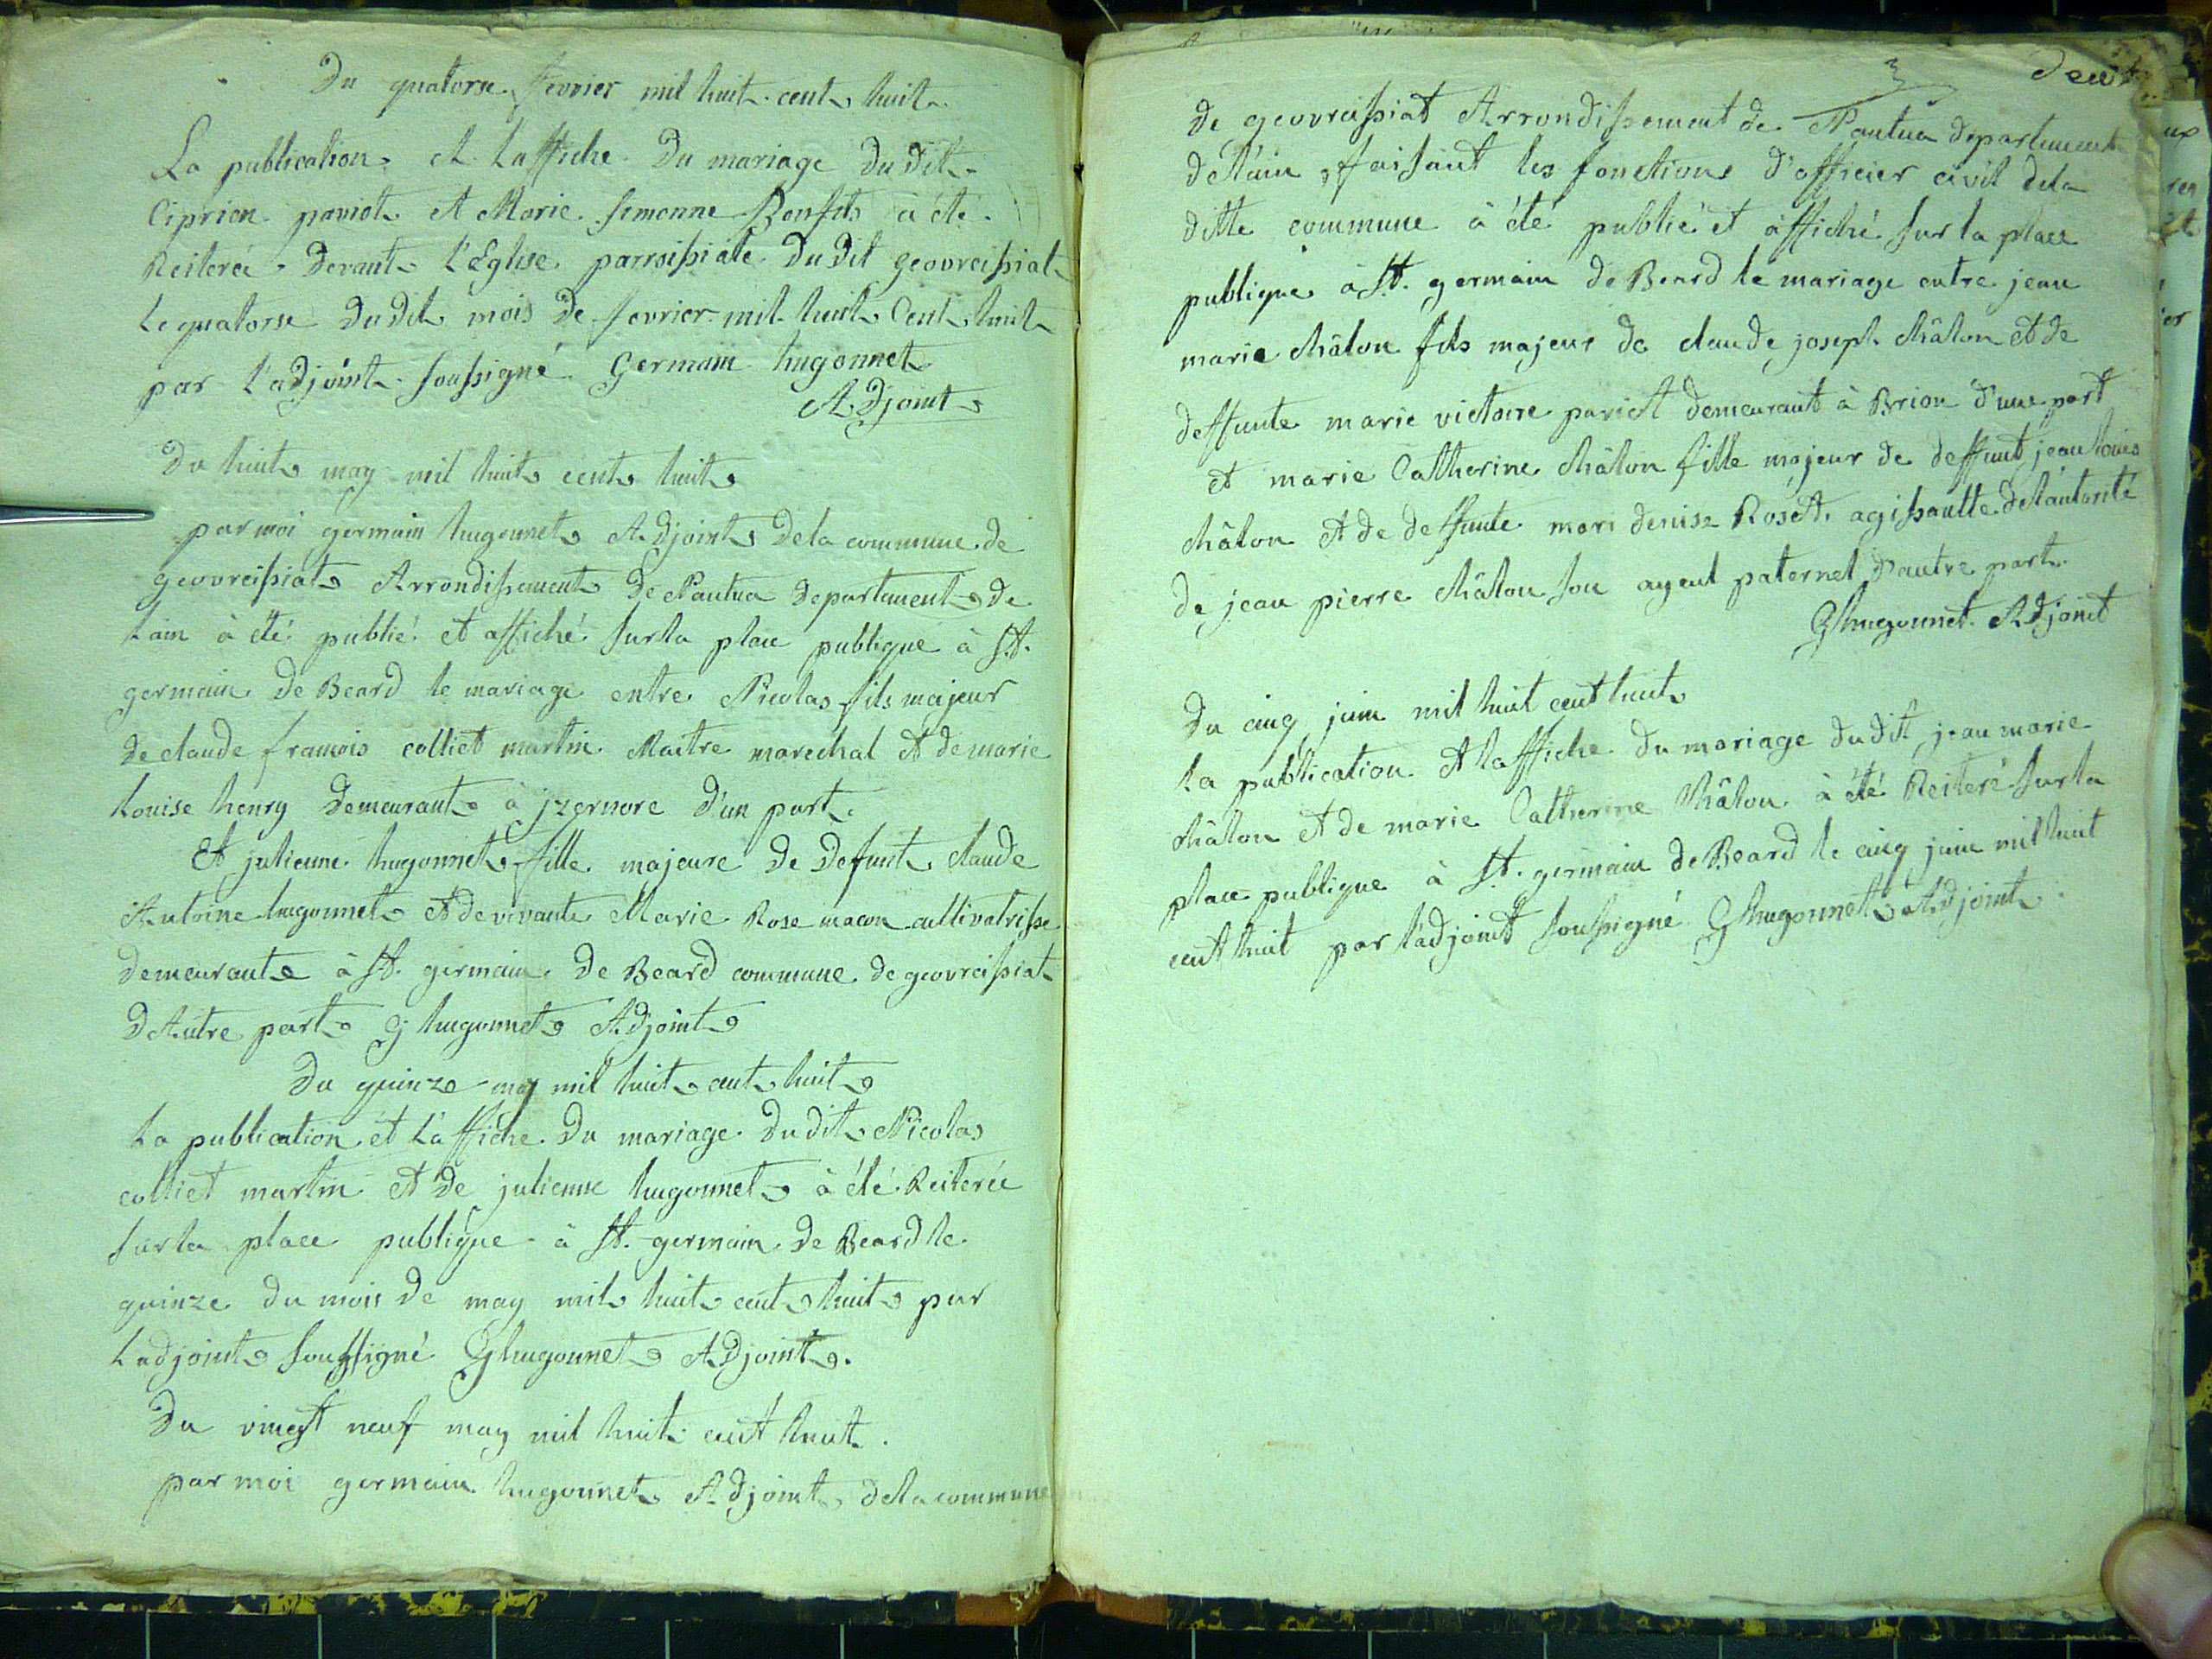 Du quatorse fevrier mil huit cent huit
La publication et Laffiche du mariage du dit
Ciprien paviot et Marie Simonne Bonfils a été
Reiterée devant L'Eglise parroissiale dudit geovreissiat
Le quatorse dudit mois de fevrier mil huit Cent huit
par L'adjoint soussigné Germain hugonnet
Adjoint
Du huit may mil huit cent huit
par moi germain hugonnet Adjoint dela commune de
geovreissiat Arrondissement de Nantua departement de
Lain à été publié et affiché surla place publique à St.
germain de Beard le mariage entre Nicolas fils majeur
de claude francois colliet martin Maitre marechal et de marie
Louise henry demeurant à jzernore d'un part
Et julienne hugonnet fille majeure de Defunt claude
Antoine hugonnet et de vivante Marie Rose macon cultivatrisse
demeurante à St. germain de Beard commune de geovreissiat
dAutre part G hugonnet Adjoint
Du quinze may mil huit cent huit
La publication et Laffiche du mariage dudit Nicolas
colliet martin et de julienne hugonnet à été Reiterée
surla place publique à St. germain de Beard le
quinze du mois de may mil huit cent huit par
Ladjoint soussigné Ghugonnet Adjoint.
Du vingt neuf may mil huit cent huit.
par moi germain hugonnet Adjoint dela commune
3 deux
de geovreissiat Arrondissement de Nantua departement
delain, faisant les fonctions d'officier civil dela
ditte commune à été publié et affiché sur la place
publique à St. germain de Beard le mariage entre jean
marie châlon fils majeur de claude joseph châlon et de
deffunte marie victoire pariet demeurant à Brion d'une part
et marie Catherine châlon fille majeur de deffunt jean louis
châlon et de deffunte mari denise Roset agissantte delautorité
de jean pierre châlon son ayeul paternel d'autre part.
Ghugonnet Adjoint
Du cinq juin mil huit cent huit
La publication et laffiche du mariage dudit jean marie
châlon et de marie Catherine châlon à été Reiteré surla
place publique à St. germain de Beard le cinq juin mil huit
cent huit par ladjoint soussigné Ghugonnet Adjoint